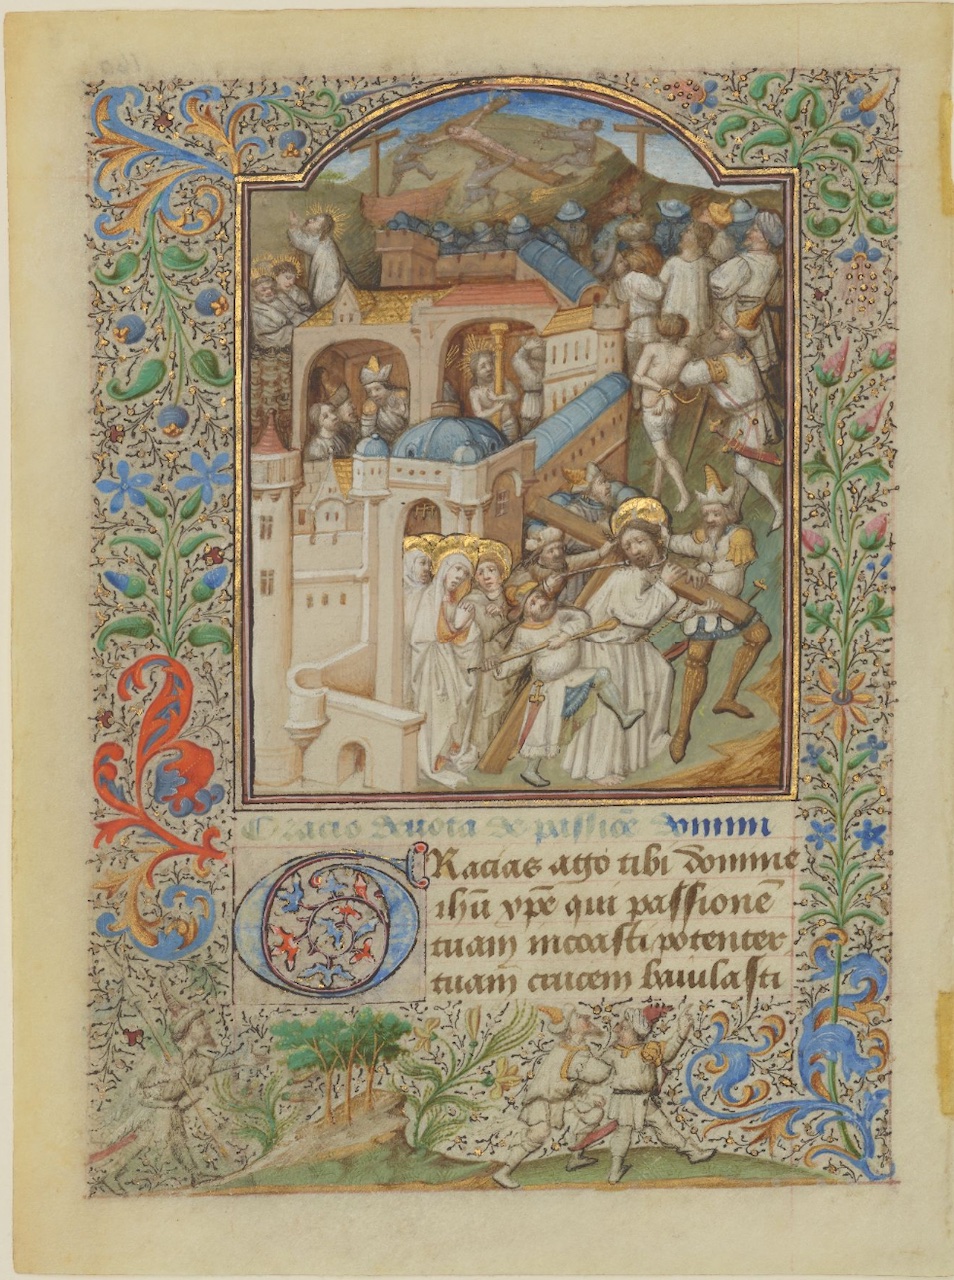 Oracio deuota de passiõe domini
GRacias ago tibi domine
ihũ xpẽ qui passionẽ
tuam incoasti potenter
tuam crucem baiulasti